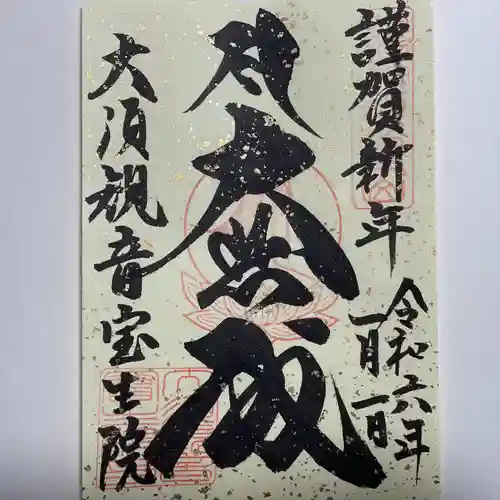 謹賀新年
令和六年
一月一日
大典咸
大須観音宝生院